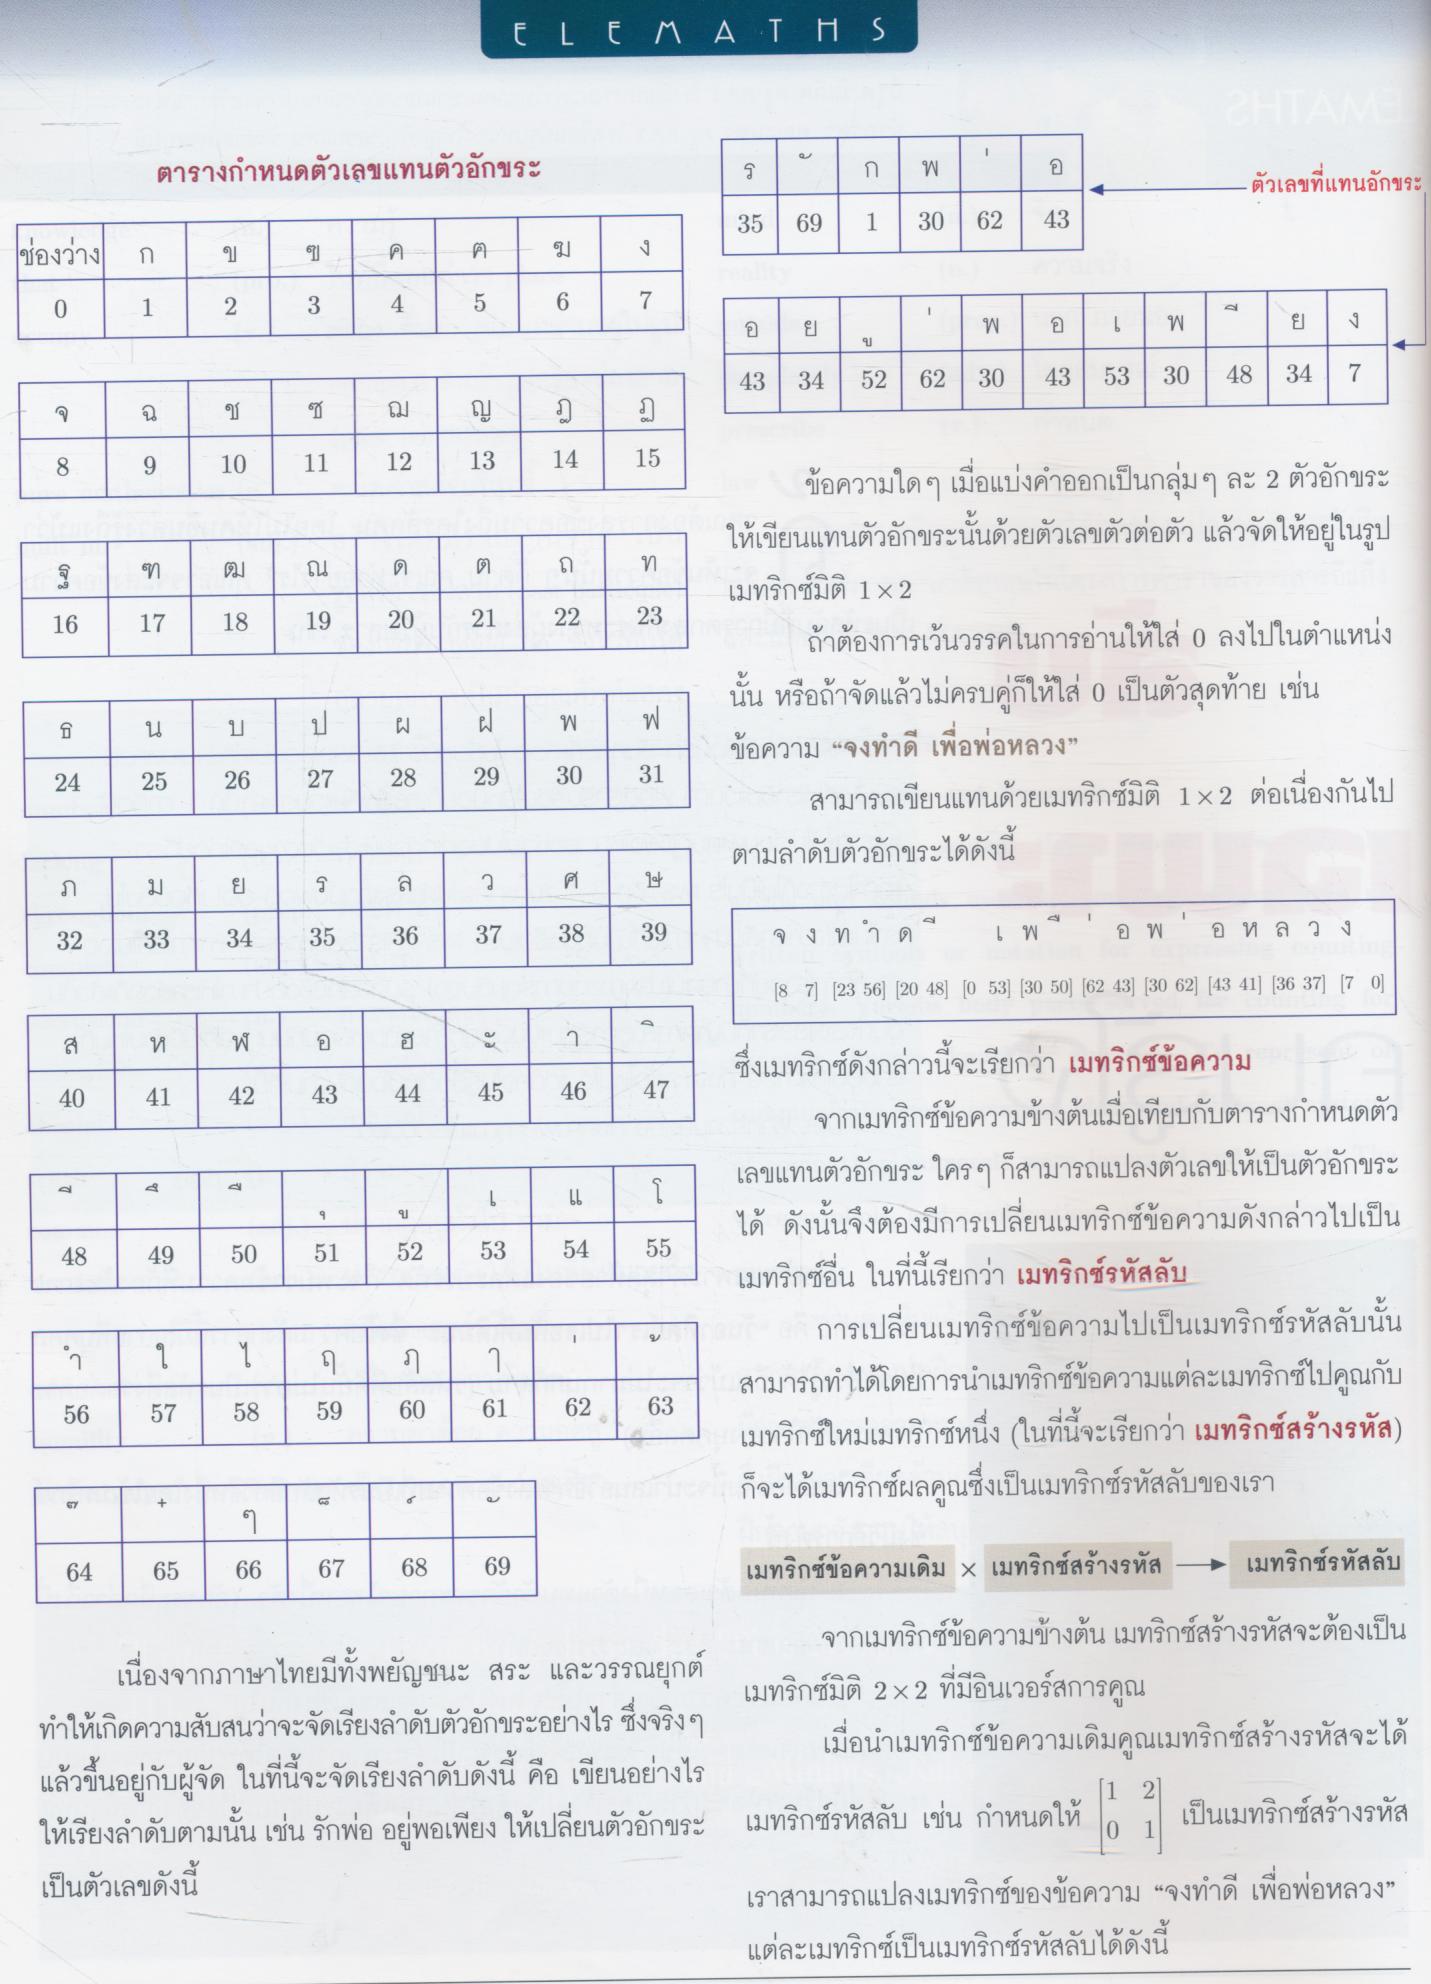 ELEMATHS
ตารางกำหนดตัวเลขแทนตัวอักขระ
ช่องว่าง ก ข ฃ ค ฅ ฆ ง
0 1 2 3 4 5 6 7
จ ฉ ช ซ ฌ ญ ฎ ฏ
8 9 10 11 12 13 14 15
ฐ ฑ ฒ ณ ด ต ถ ท
16 17 18 19 20 21 22 23
ธ น บ ป ผ ฝ พ ฟ
24 25 26 27 28 29 30 31
ภ ม ย ร ล ว ศ ษ
32 33 34 35 36 37 38 39
ส ห ฬ อ ฮ ะ า ิ
40 41 42 43 44 45 46 47
ี ึ ื ุ ู เ แ โ
48 49 50 51 52 53 54 55
ำ ใ ไ ฤ ฦ ๅ ่ ้
56 57 58 59 60 61 62 63
๊ ๋ ๆ ็ ์ ั
64 65 66 67 68 69
เนื่องจากภาษาไทยมีทั้งพยัญชนะ สระ และวรรณยุกต์
ทำให้เกิดความสับสนว่าจะจัดเรียงลำดับตัวอักขระอย่างไร ซึ่งจริงๆ
แล้วขึ้นอยู่กับผู้จัด ในที่นี้จะจัดเรียงลำดับดังนี้ คือ เขียนอย่างไร
ให้เรียงลำดับตามนั้น เช่น รักพ่อ อยู่พอเพียง ให้เปลี่ยนตัวอักขระ
เป็นตัวเลขดังนี้
ร ั ก พ ่ อ
35 69 1 30 62 43
ตัวเลขที่แทนอักขระ
อ ย ู ่ พ อ เ พ ี ย ง
43 34 52 62 30 43 53 30 48 34 7
ข้อความใดๆ เมื่อแบ่งคำออกเป็นกลุ่มๆ ละ 2 ตัวอักขระ
ให้เขียนแทนตัวอักขระนั้นด้วยตัวเลขตัวต่อตัว แล้วจัดให้อยู่ในรูป
เมทริกซ์มิติ 1 × 2
ถ้าต้องการเว้นวรรคในการอ่านให้ใส่ 0 ลงไปในตำแหน่ง
นั้น หรือถ้าจัดแล้วไม่ครบคู่ก็ให้ใส่ 0 เป็นตัวสุดท้าย เช่น
ข้อความ “จงทำดี เพื่อพ่อหลวง”
สามารถเขียนแทนด้วยเมทริกซ์มิติ 1 × 2 ต่อเนื่องกันไป
ตามลำดับตัวอักขระได้ดังนี้
จ ง ท ำ ด ี เ พ ื ่ อ พ ่ อ ห ล ว ง
[8 7] [23 56] [20 48] [0 53] [30 50] [62 43] [30 62] [43 41] [36 37] [7 0]
ซึ่งเมทริกซ์ดังกล่าวนี้จะเรียกว่า เมทริกซ์ข้อความ
จากเมทริกซ์ข้อความข้างต้นเมื่อเทียบกับตารางกำหนดตัว
เลขแทนตัวอักขระ ใครๆ ก็สามารถแปลงตัวเลขให้เป็นตัวอักขระ
ได้ ดังนั้นจึงต้องมีการเปลี่ยนเมทริกซ์ข้อความดังกล่าวไปเป็น
เมทริกซ์อื่น ในที่นี้เรียกว่า เมทริกซ์รหัสลับ
การเปลี่ยนเมทริกซ์ข้อความไปเป็นเมทริกซ์รหัสลับนั้น
สามารถทำได้โดยการนำเมทริกซ์ข้อความแต่ละเมทริกซ์ไปคูณกับ
เมทริกซ์ใหม่เมทริกซ์หนึ่ง (ในที่นี้จะเรียกว่า เมทริกซ์สร้างรหัส)
ก็จะได้เมทริกซ์ผลคูณซึ่งเป็นเมทริกซ์รหัสลับของเรา
เมทริกซ์ข้อความเดิม × เมทริกซ์สร้างรหัส → เมทริกซ์รหัสลับ
จากเมทริกซ์ข้อความข้างต้น เมทริกซ์สร้างรหัสจะต้องเป็น
เมทริกซ์มิติ 2 × 2 ที่มีอินเวอร์สการคูณ
เมื่อนำเมทริกซ์ข้อความเดิมคูณเมทริกซ์สร้างรหัสจะได้
เมทริกซ์รหัสลับ เช่น กำหนดให้ [1 2 0 1] เป็นเมทริกซ์สร้างรหัส
เราสามารถแปลงเมทริกซ์ของข้อความ “จงทำดี เพื่อพ่อหลวง”
แต่ละเมทริกซ์เป็นเมทริกซ์รหัสลับได้ดังนี้